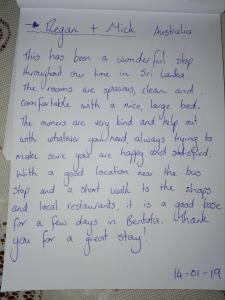 Regan + Mick Australia
This has been a wonderful stop
throughout our time in Sri Lanka.
The rooms are spacious, clean and
comfortable with a nice, large bed.
The owners are very kind and help out
with whatever you need, always trying to
make sure you are happy and satisfied.
With a good location near the bus
stop and a short walk to the shops
and local restaurants, it is a good base
for a few days in Bentota. Thank
you for a great stay!
14-01-19